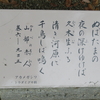 ぬばたまの
夜の深けゆけば
久木生ふる
清き河原に
千鳥しば鳴く
山部赤人